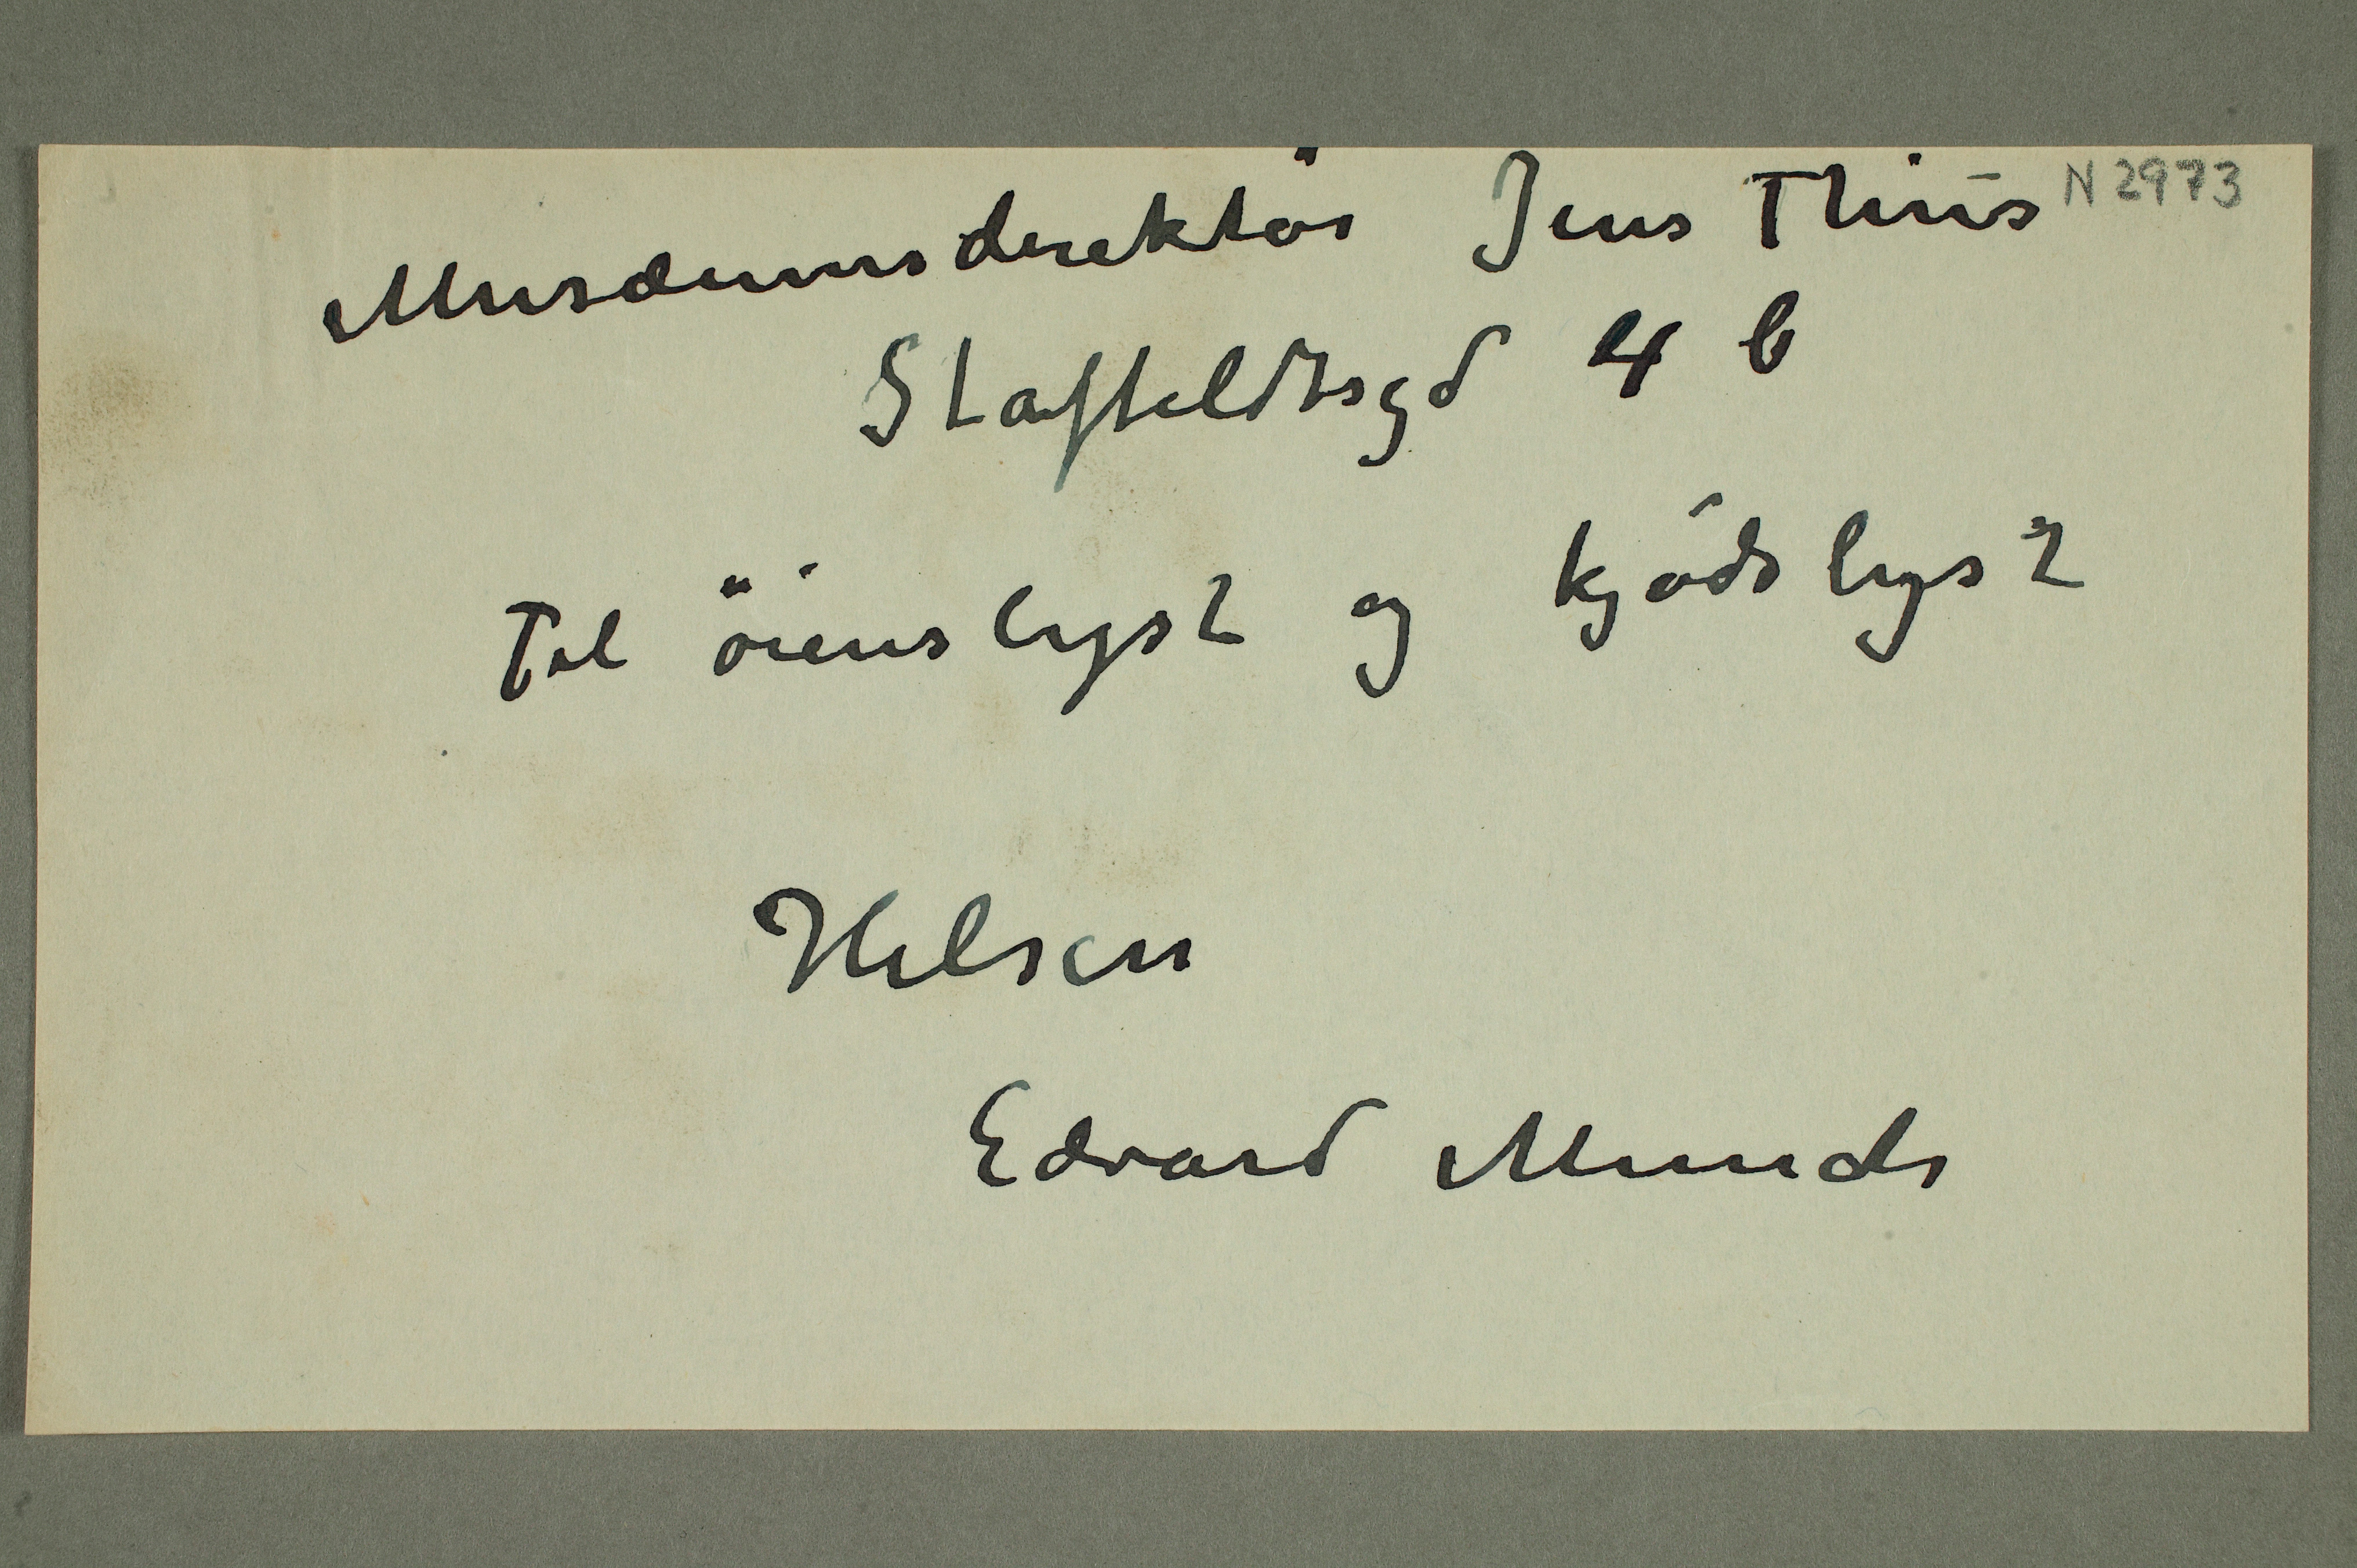 Musæumsdirektör Jens Thiis N 2973
Staffeldtsgd 4 b
Til öienslyst og kjödslyst
Hilsen
Edvard Munch